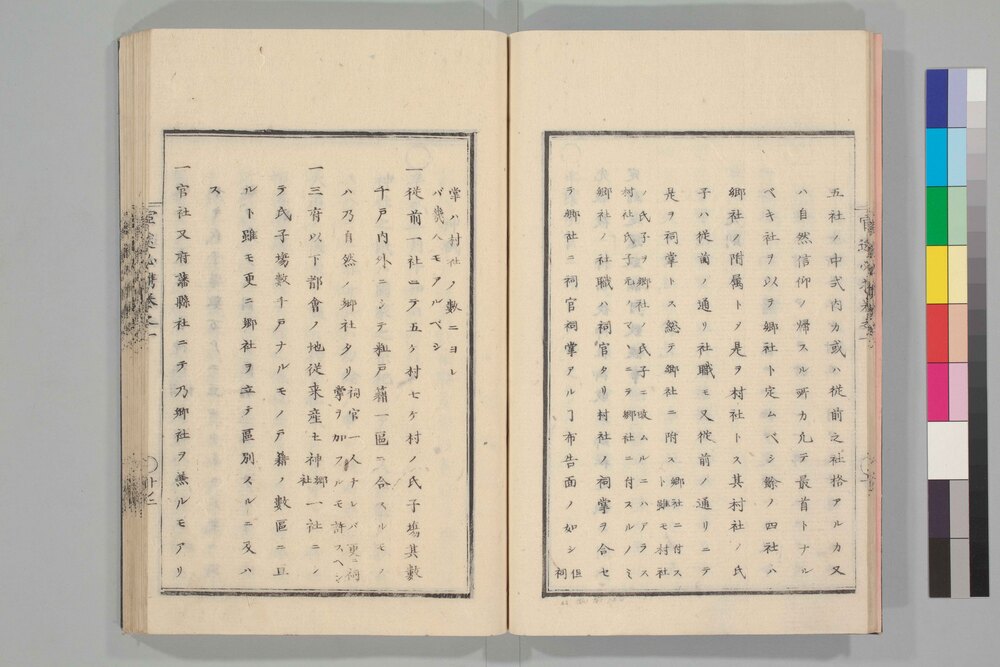 五社ノ中式内カ或ハ從前之社格アルカ又
ハ自然信仰ノ帰スル所カ凡テ最首トナル
ベキ社ヲ以テ郷社ト定ムベシ餘ノ四社ハ
郷社ノ附属トヲ是ヲ村社トス其村社ノ氏
子ハ從前ノ通リ社職モ又從前ノ通リニテ
是ヲ祠掌トス総テ郷社ニ附ス郷社ニ付スト雖モ村社
ノ氏子ヲ郷社ノ氏子ニ改ムルニハアラス
村社氏子元ノマヽニテ郷社ニ付スルノミ
郷社ノ社職ハ祠官タリ村社ノ祠掌ヲ合セ
テ郷社ニ祠官祠掌アルヿ布告面ノ如シ但祠
掌ハ村社ノ數ニヨレ
バ幾人モアルベシ
一從前一社ニテ五ケ村七ケ村ノ氏子場其數
千戸内外ニシテ粗戸籍一區ニ合スルモノ
ハ乃自然ノ郷社タリ祠官一人ナレバ更ニ祠掌ヲ加フルモ許スヘシ
一三府以下都會ノ地従来産土神郷社一社ニノ
テ氏子場數千戸ナルモノ戸籍ノ數區ニ亘
ルト雖モ更ニ郷社ヲ立テ區別スルニ及ハ
ス
一官社又府藩縣社ニテ乃郷社ヲ兼ルモアリ